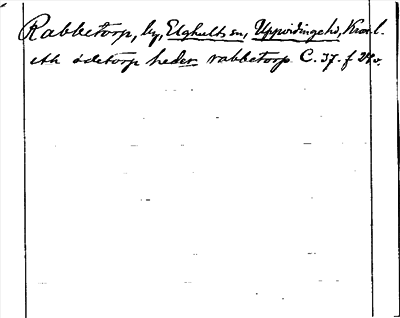 Rabbetorp, by, Elghults sn, Uppvidinge hd, Kron.l.
eth ödetorp heder rabbetorp C. 37. f 24 v.